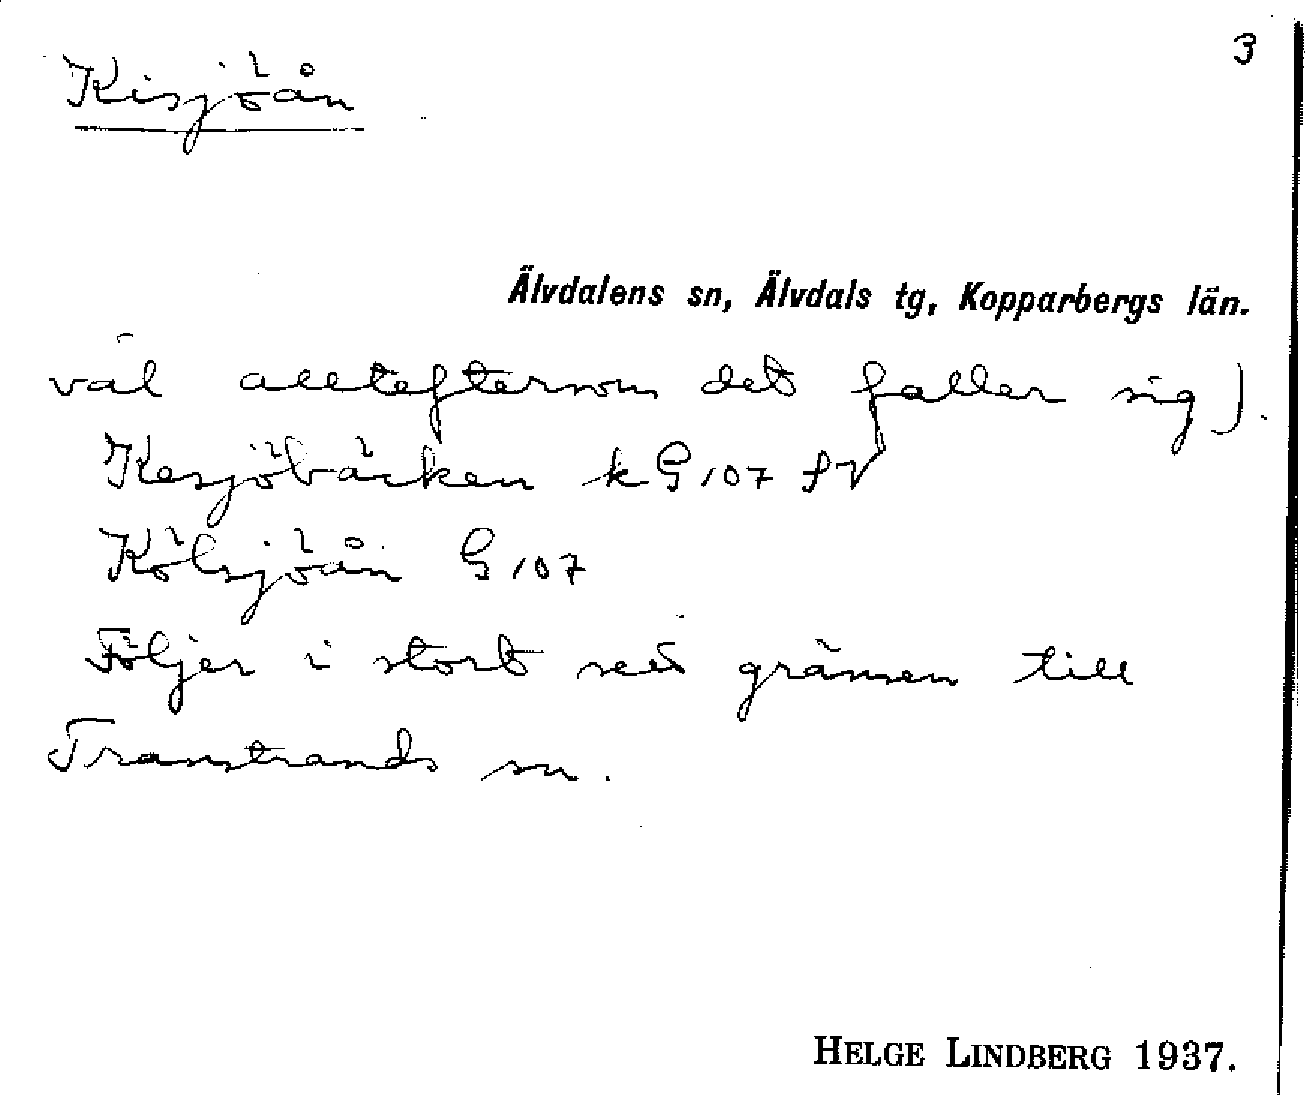 3
Kisjöån
Älvdalens sn, Älvdals tg, Kopparbergs län.
väl allteftersom det faller sig).
Kesjöbäcken k G 107
Kölsjöån G 107
Följer i stort sett gränsen till
Transtrands sn.
HELGE LINDBERG 1937.